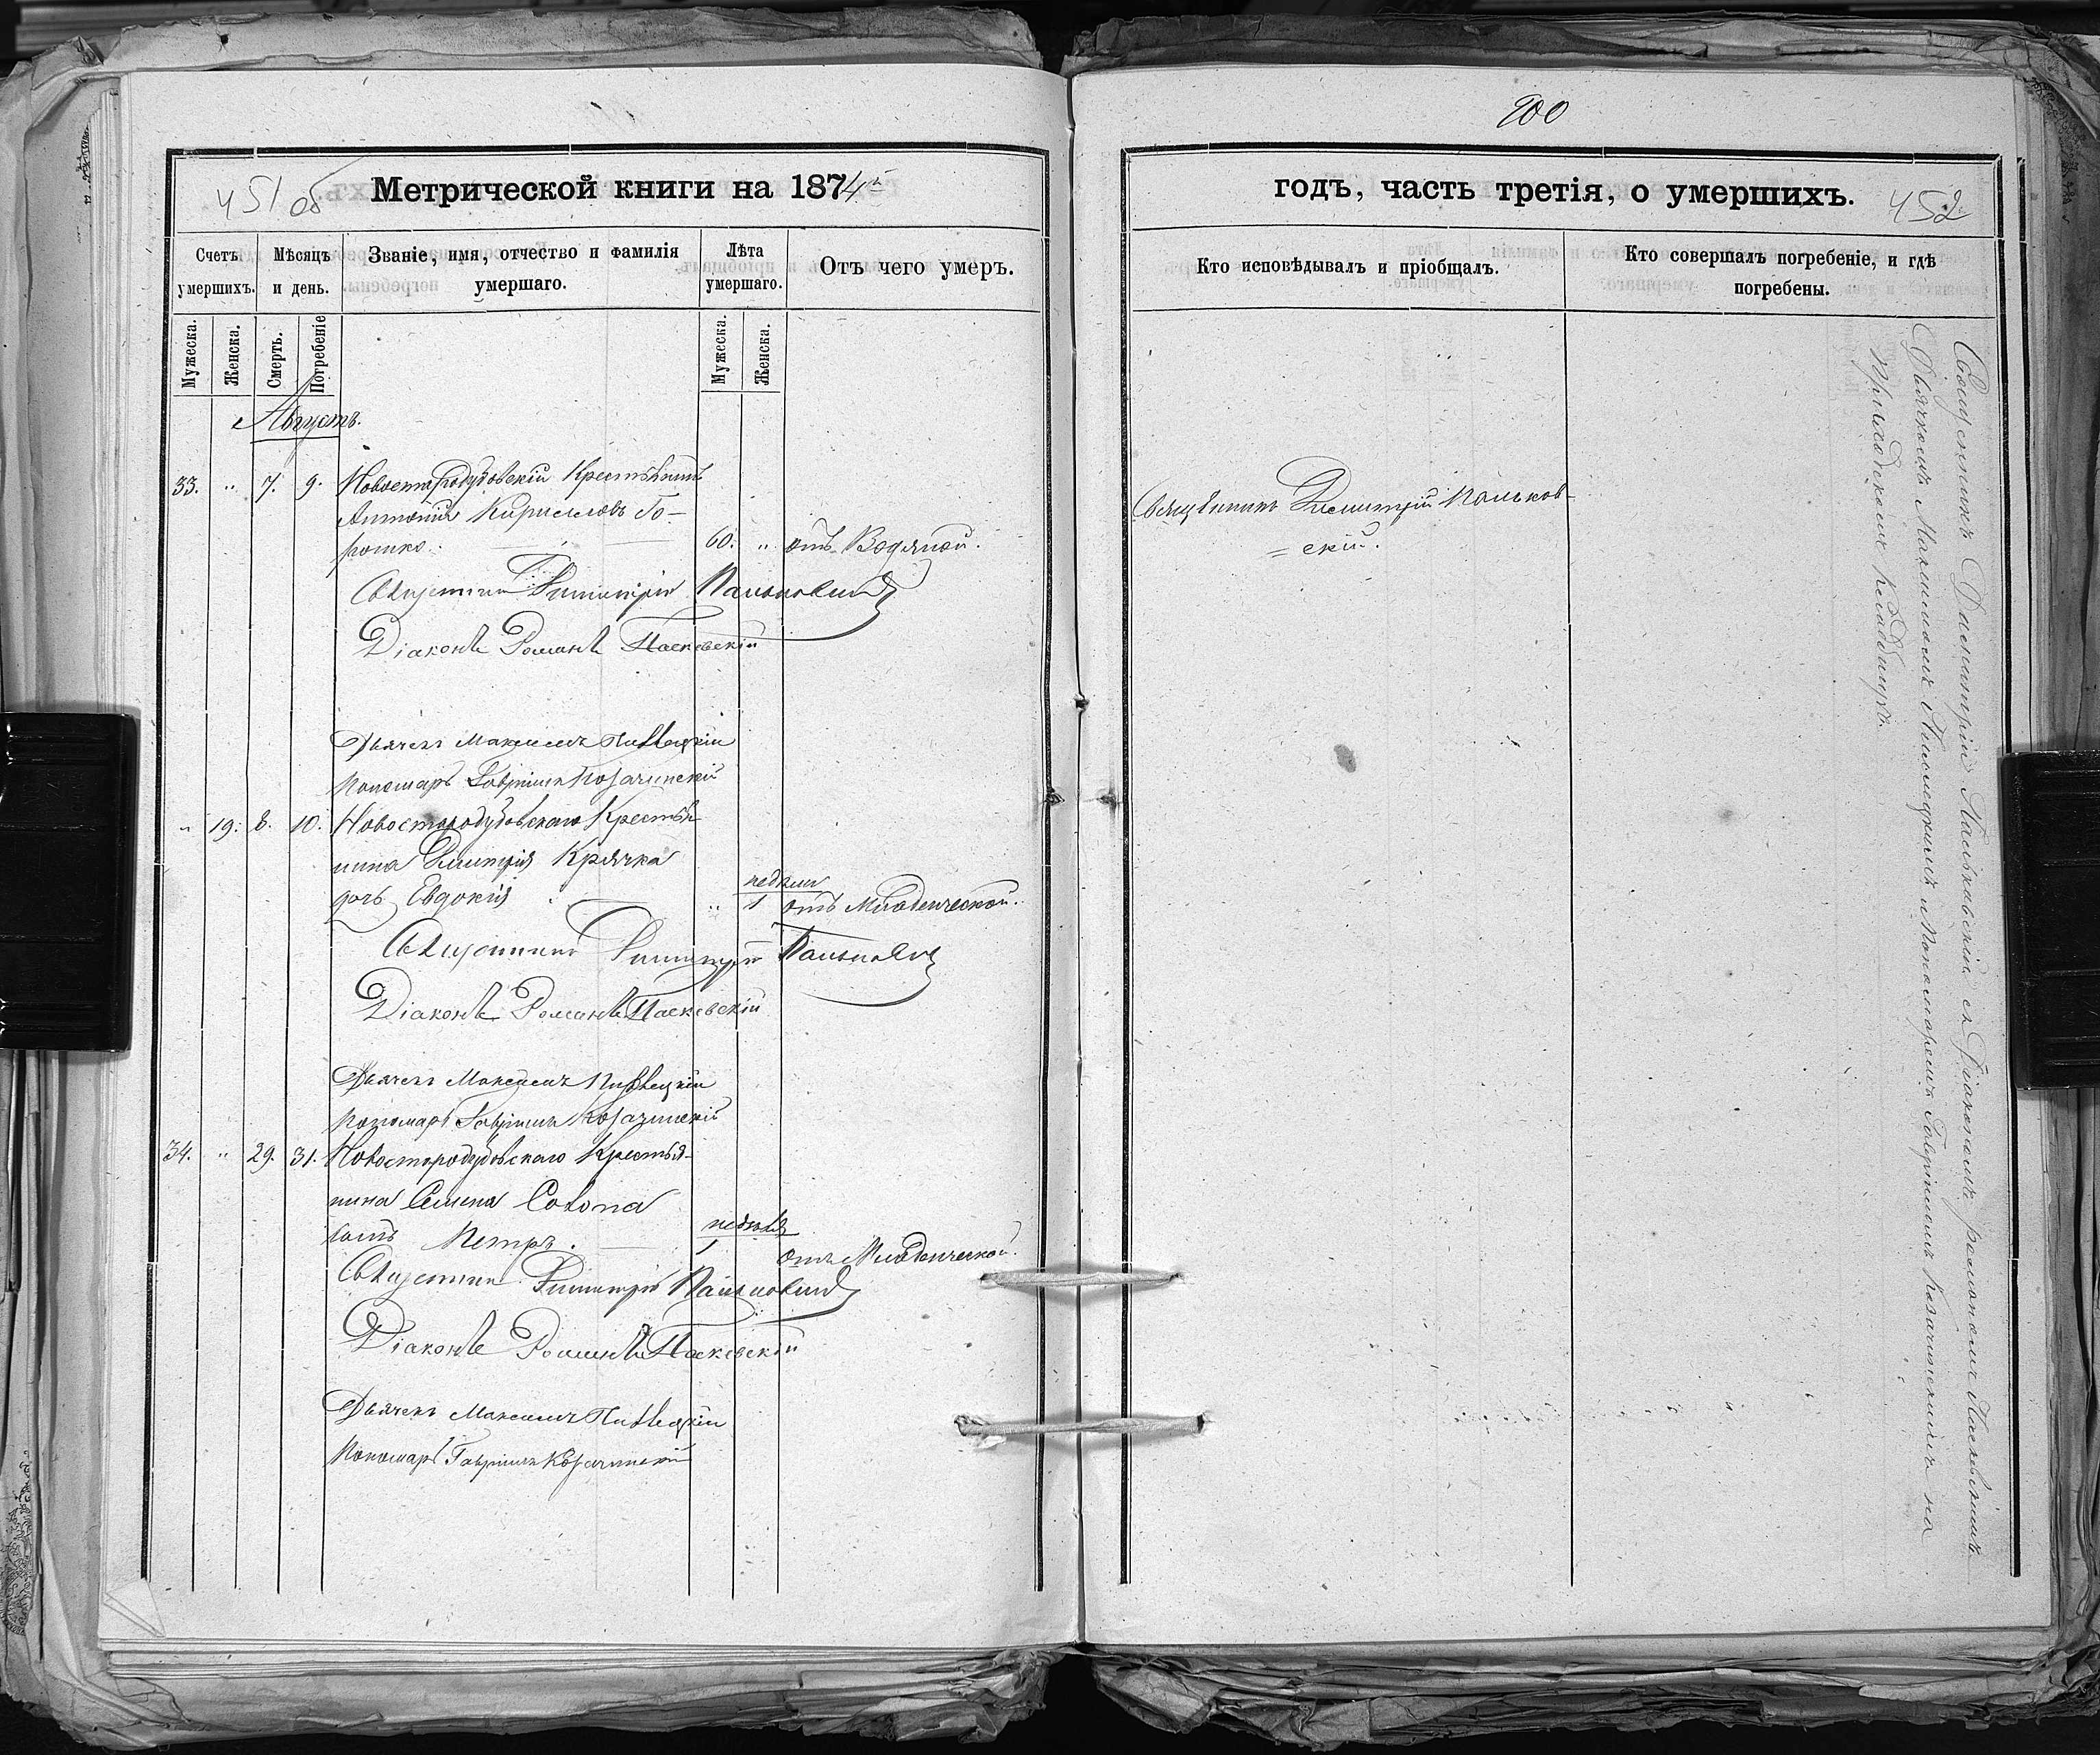 451 об
Метрической книги на 1874й
Счетъ умершихъ.
Мѣсяцъ и день.
Званіе, имя, отчество и фамилія умершаго.
Лѣта умершаго.
Отъ чего умеръ.
Мужеска.
Женска.
Смерть.
Погребеніе
Мужеска.
Женска.
Августъ.
33. " 7. 9. Новостародубовскій Крестьянинъ
Антоній Кирилловъ Го-
рошко. 60. " отъ Водяной.
Священникъ Димитрій Пальковскій
Діаконъ Романъ Паскевскій
Дьячекъ Максимъ
Пономарь Гавріилъ Козачинскій
" 19. 8. 10. Новостародубовскаго Крестья-
нина Димитрія Крячка
недѣли
дочь Евдокія " 1 отъ Младенческой.
Священникъ Димитрій Пальковскій
Діаконъ Романъ Паскевскій
Дьячекъ Максимъ
Пономарь Гавріилъ Козачинскій
34. " 29. 31. Новостародубовскаго Крестья-
нина Семена Совона
недѣля
сынъ Петръ. 1
отъ Младенческой.
Священникъ Димитрій Пальковскій
Діаконъ Романъ Паскевскій
Дьячекъ Максимъ
Пономарь Гавріилъ Козачинскій
900
годъ, часть третія, о умершихъ.
452
Кто исповѣдывалъ и пріобщалъ.
Кто совершалъ погребеніе, и гдѣ погребены.
Священникъ Димитрій Пальков-
=скій.
Священникъ Димитрій Пальковскій съ Діакономъ Романомъ Паскевскимъ
Дьячкомъ Максимомъ и Пономаремъ Гавріиломъ Козачинскимъ на
Приходскомъ Кладбищѣ.